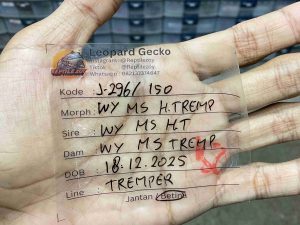 Leopard Gecko
Instagram : @Reptileazy
Tiktok : @Reptileazy
Whatsapp : 082137374647
REPTILEAZY
Kode : J-296/150
Morph : WY MS H.TREMP
Sire : WY MS HT
Dam : WY MS TREMP
DOB : 18.12.2025
Line : TREMPER
Jantan / Betina